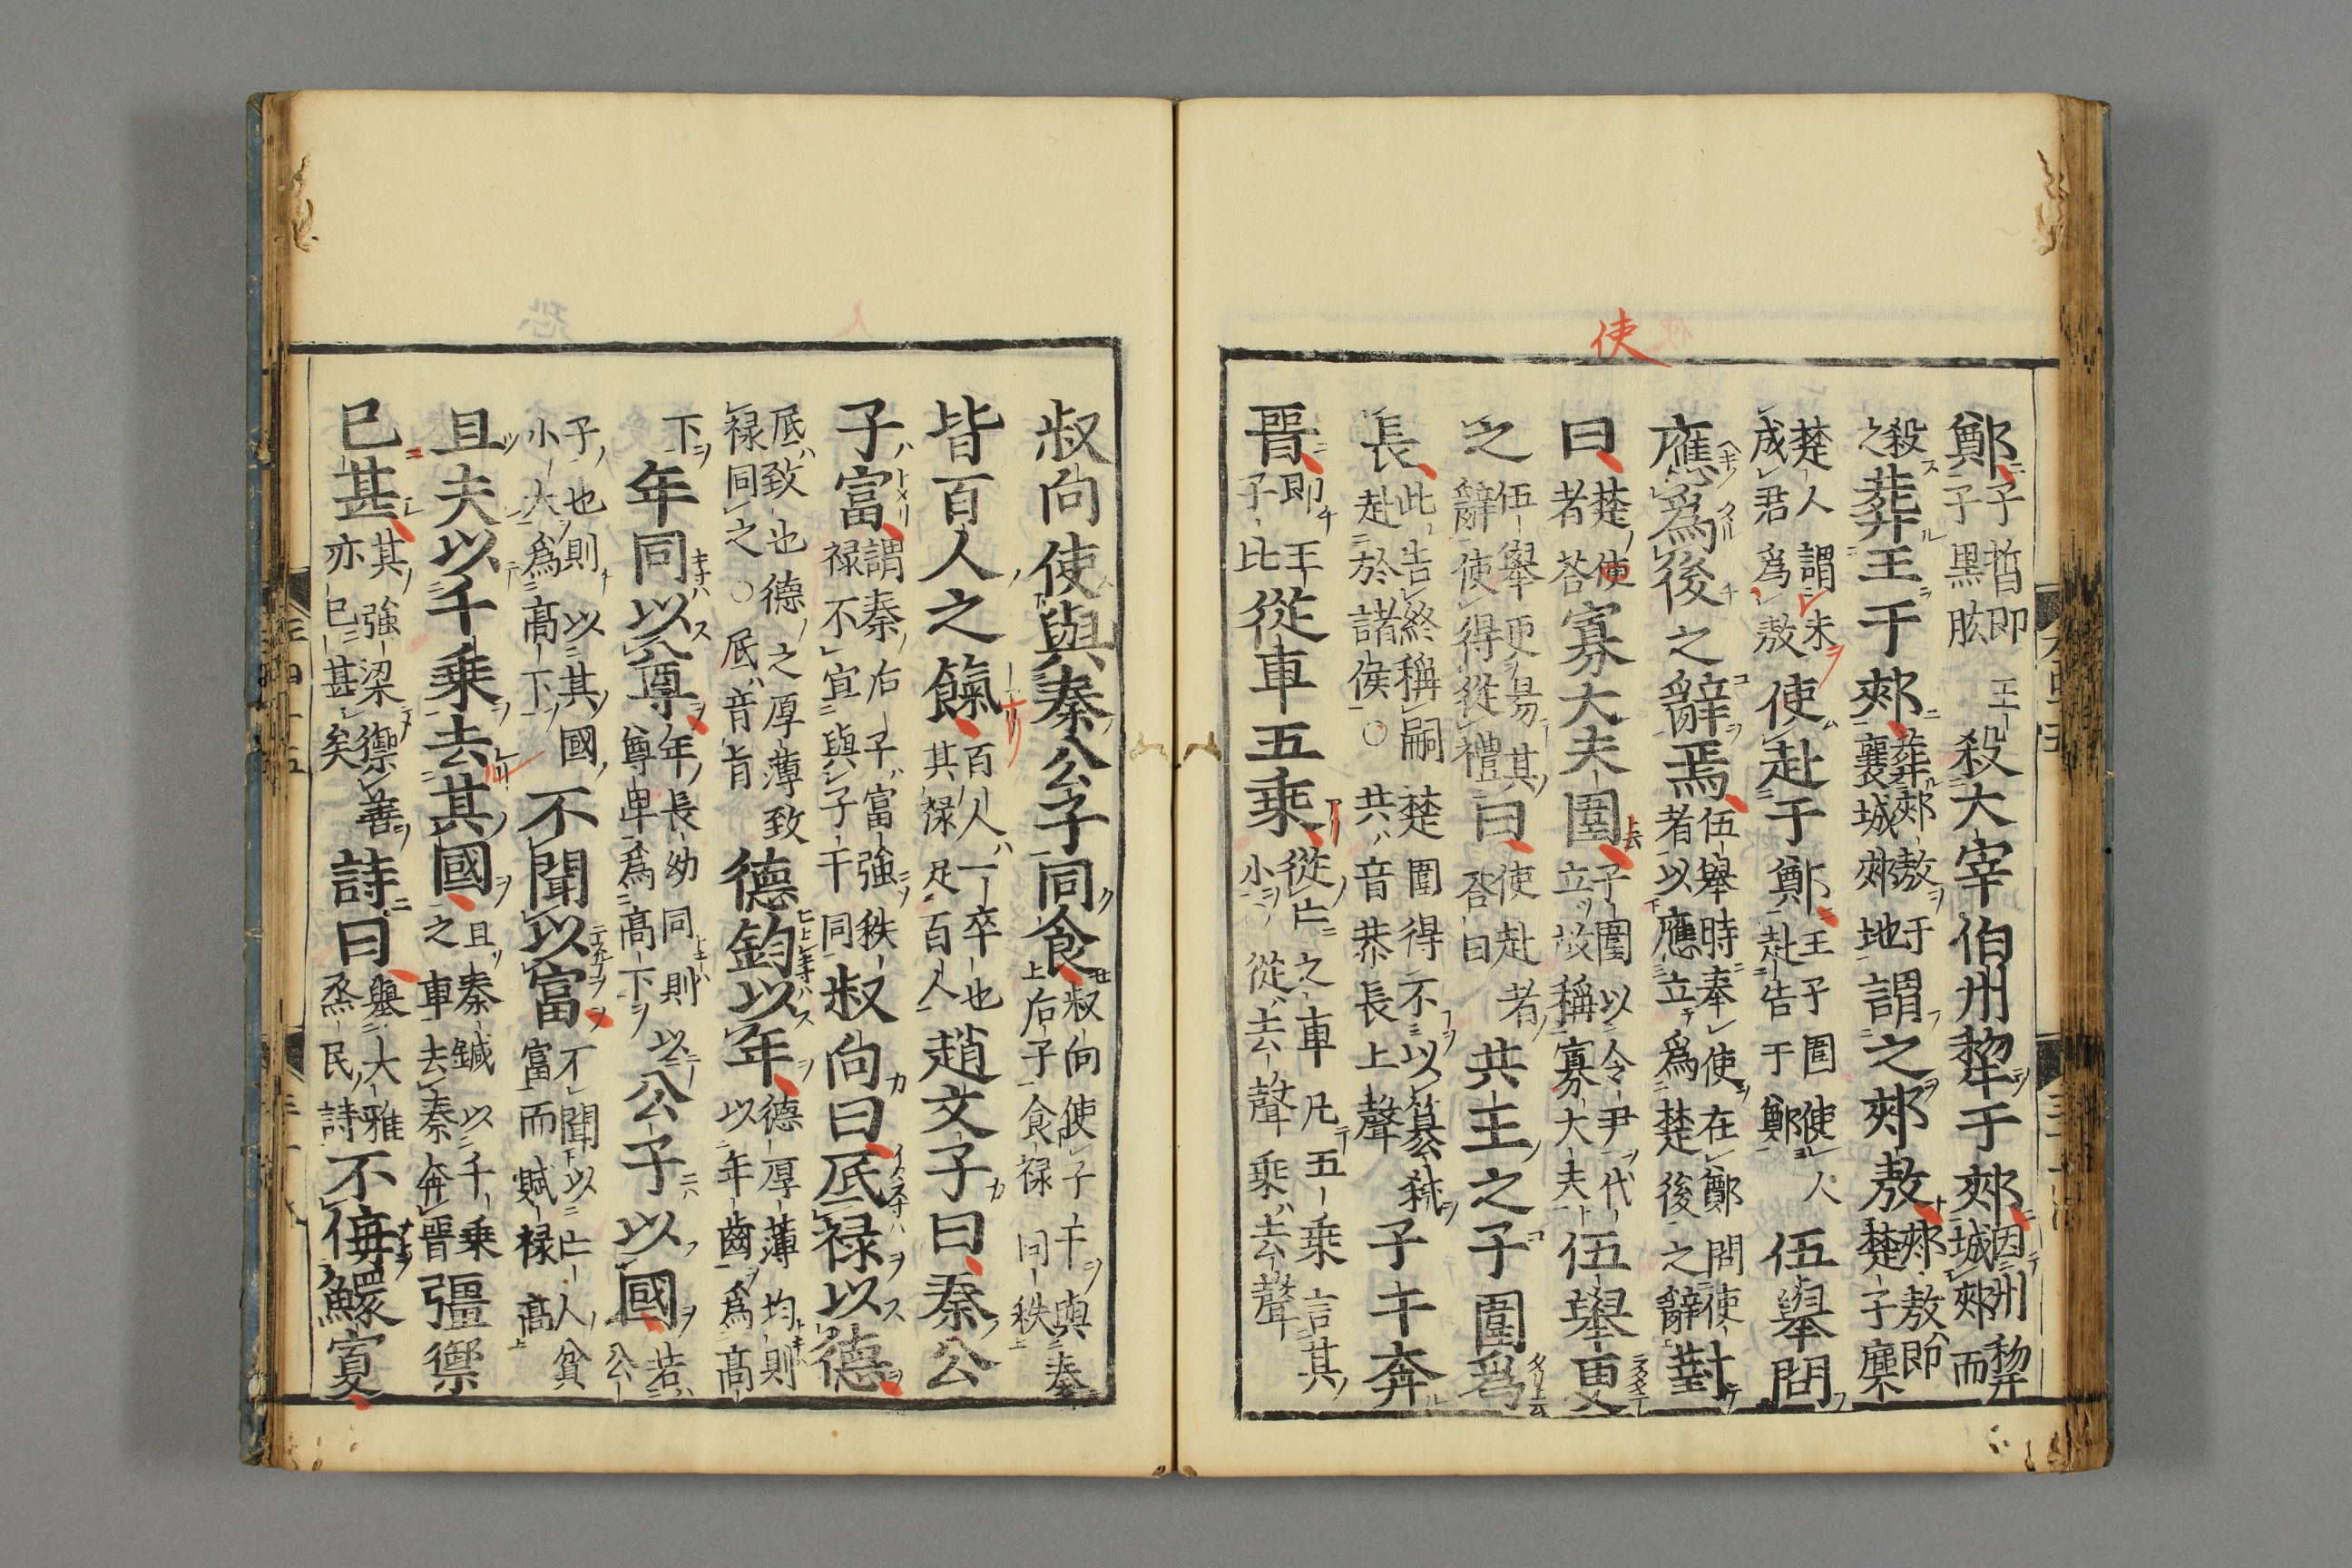 使
鄭子晳即子黑肱王殺大宰伯州犂于郟因州犂城郟而
殺之葬王于郟葬郟敖于襄城郟地謂之郟敖郟敖即楚子麇
楚人謂未成君爲敖使赴于鄭王子圍使人赴告于鄭伍舉問
應爲後之辭焉伍舉時奉使在鄭問使者以應立爲楚後之辭對
曰楚使者荅寡大夫圍子圍以令尹代立故稱寡大夫伍舉更
之伍舉更易其辭使得從禮曰使赴者荅曰共王之子圍爲
長此告終稱嗣赴於諸侯○楚圍得不以篡弒共音恭長上聲子干奔
晉即王子比從車五乘從亡之車凡五乘言其小從去聲乘去聲
叔向使與秦公子同食叔向使子干與秦上后子食禄同秩
皆百人之餼百人一卒也其禄足百人趙文子曰秦公
子富謂秦后子富強秩禄不宜與子干同叔向曰底禄以德
底致也德之厚薄致禄同之○底音旨德鈞以年德厚薄均則以年齒爲高
下年同以尊年長幼同則以尊卑爲高下公子以國若公
子也則以其國小大爲高下不聞以富不聞以亡人貧富而賦禄高
且夫以千乘去其國且秦鍼以千乘之車去秦奔晉彊禦
已甚其強梁禦善亦已甚矣詩曰舉大雅烝民詩不侮鰥寡